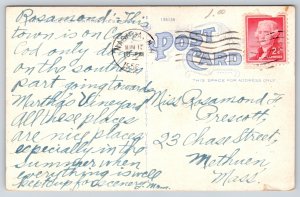 Rosamond: This
town is on Cape
Cod only down
on the south
part going toward
Martha's Vineyard
All these places
are nice places
especially in the
summer when
everything is well
kept up for a
POST
CARD
THIS SPACE FOR ADDRESS ONLY
1.00
2¢
Miss Rosamond F.
Prescott,
23 Chase Street,
Methuen
Mass.